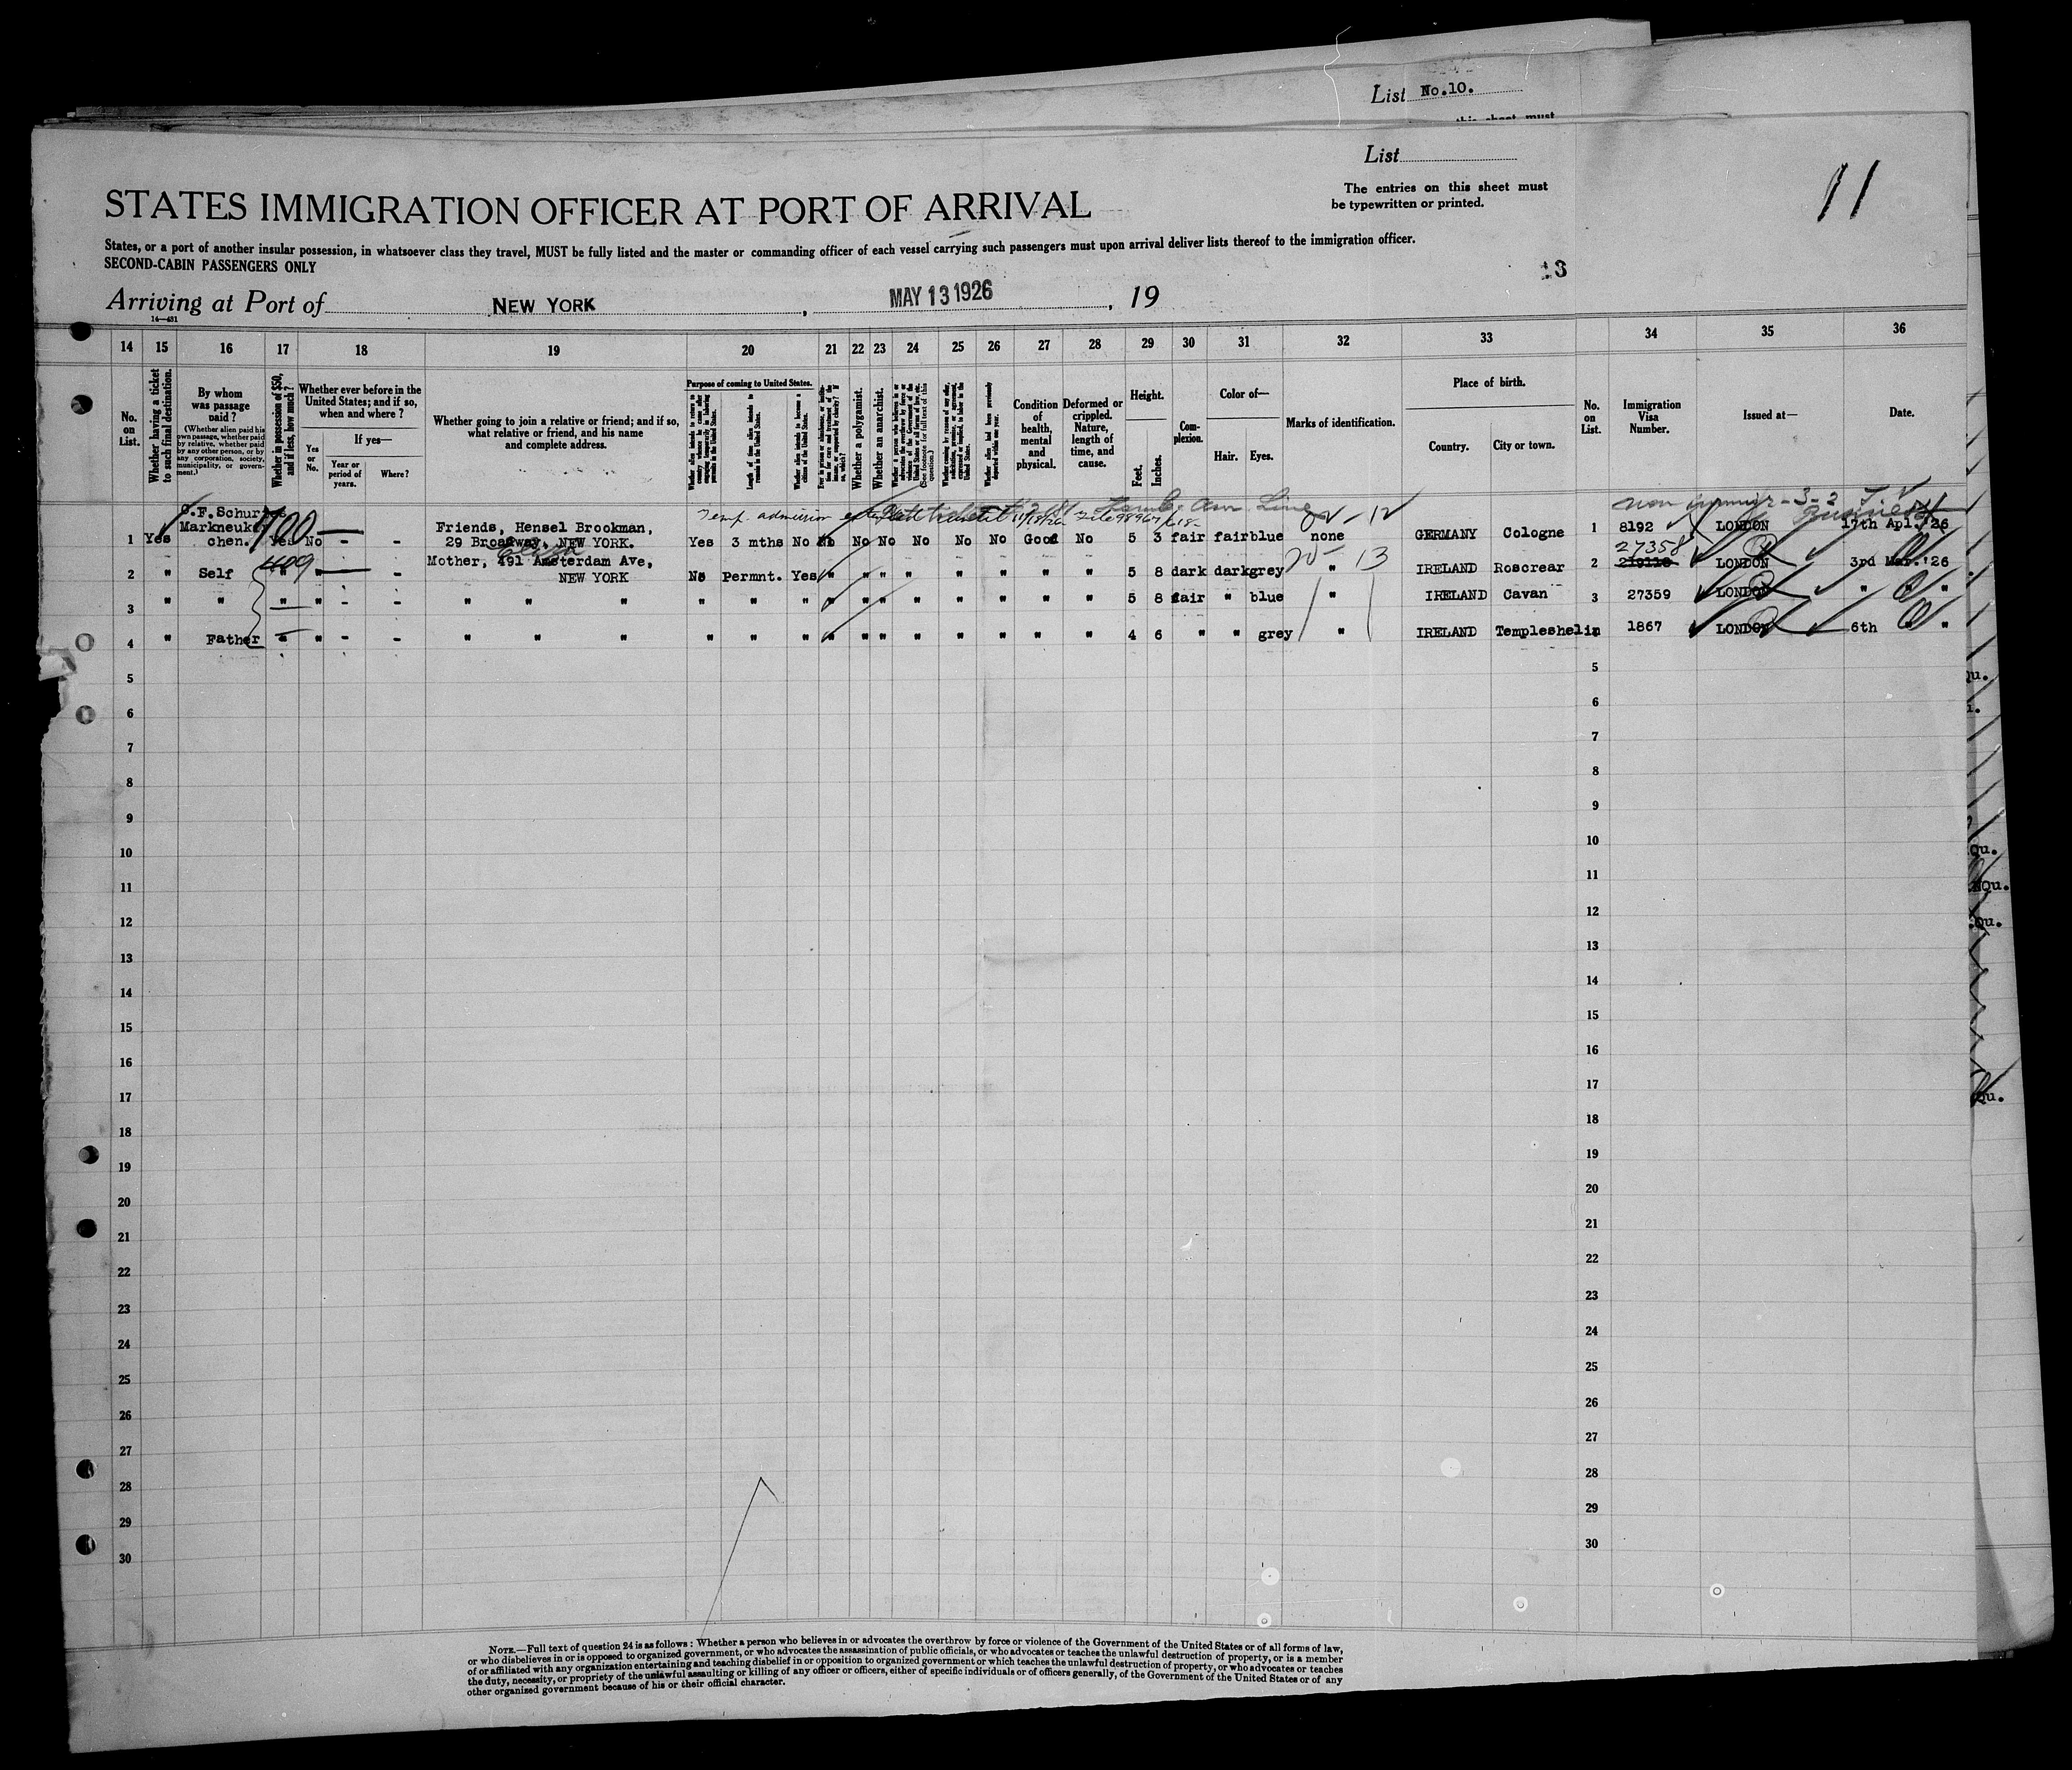 List No.10.
this sheet must
List
The entries on this sheet must
be typewritten or printed.
11
STATES IMMIGRATION OFFICER AT PORT OF ARRIVAL
States, or a port of another insular possession, in whatsoever class they travel, MUST be fully listed and the master or commanding officer of each vessel carrying such passengers must upon arrival deliver lists thereof to the immigration officer.
SECOND-CABIN PASSENGERS ONLY
13
Arriving at Port of NEW YORK, MAY 13 1926, 19
14—431
14 15 16 17 18 19 20 21 22 23 24 25 26 27 28 29 30 31 32 33 34 35 36
No. on List.
Whether having a ticket to such final destination.
By whom was passage paid?
(Whether alien paid his own passage, whether paid by relative, whether paid by any other person, or by any corporation, society, municipality, or government.)
Whether in possession of $50, and if less, how much?
Whether ever before in the United States; and if so, when and where?
Yes or No.
If yes—
Year or period of years.
Where?
Whether going to join a relative or friend; and if so, what relative or friend, and his name and complete address.
Purpose of coming to United States.
Length of time alien intends to remain in the United States.
Whether alien intends to become a citizen of the United States.
Whether a polygamist.
Whether an anarchist.
(See footnote for full text of this question.)
Whether alien had been previously deported within one year.
Condition of health, mental and physical.
Deformed or crippled. Nature, length of time, and cause.
Height.
Feet. Inches.
Complexion.
Color of—
Hair. Eyes.
Marks of identification.
Place of birth.
Country. City or town.
No. on List.
Immigration Visa Number.
Issued at—
Date.
Temp. admission Hamb. Am Line
non immigr - 3-2 Business
1 Yes Markneukirchen. 100 Yes No - - Friends, Hensel Brookman, 29 Broadway, NEW YORK. Yes 3 mths No No No No No No No Good No 5 3 fair fair blue none GERMANY Cologne 1 8192 LONDON 17th Apl.'26
2 " Self " " - Mother, 491 Amsterdam Ave, NEW YORK No Permnt. Yes " " " " " " " " 5 8 dark dark grey " IRELAND Roscrear 2 27358 LONDON 3rd Mar.'26
3 " " " " - - " " " " " " " " " " " " " " 5 8 fair " blue " IRELAND Cavan 3 27359 LONDON " " "
4 " Father " " - - " " " " " " " " " " " " " " 4 6 " " grey " IRELAND Templeshelin 4 1867 LONDON 6th "
5 5
6 6
7 7
8 8
9 9
10 10
11 11
12 12
13 13
14 14
15 15
16 16
17 17
18 18
19 19
20 20
21 21
22 22
23 23
24 24
25 25
26 26
27 27
28 28
29 29
30 30
NOTE.—Full text of question 24 is as follows: Whether a person who believes in or advocates the overthrow by force or violence of the Government of the United States or of all forms of law,
or who disbelieves in or is opposed to organized government, or who advocates the assassination of public officials, or who advocates or teaches the unlawful destruction of property, or is a member
of or affiliated with any organization entertaining and teaching disbelief in or opposition to organized government or which teaches the unlawful destruction of property, or who advocates or teaches
the duty, necessity, or propriety of the unlawful assaulting or killing of any officer or officers, either of specific individuals or of officers generally, of the Government of the United States or of any
other organized government because of his or their official character.